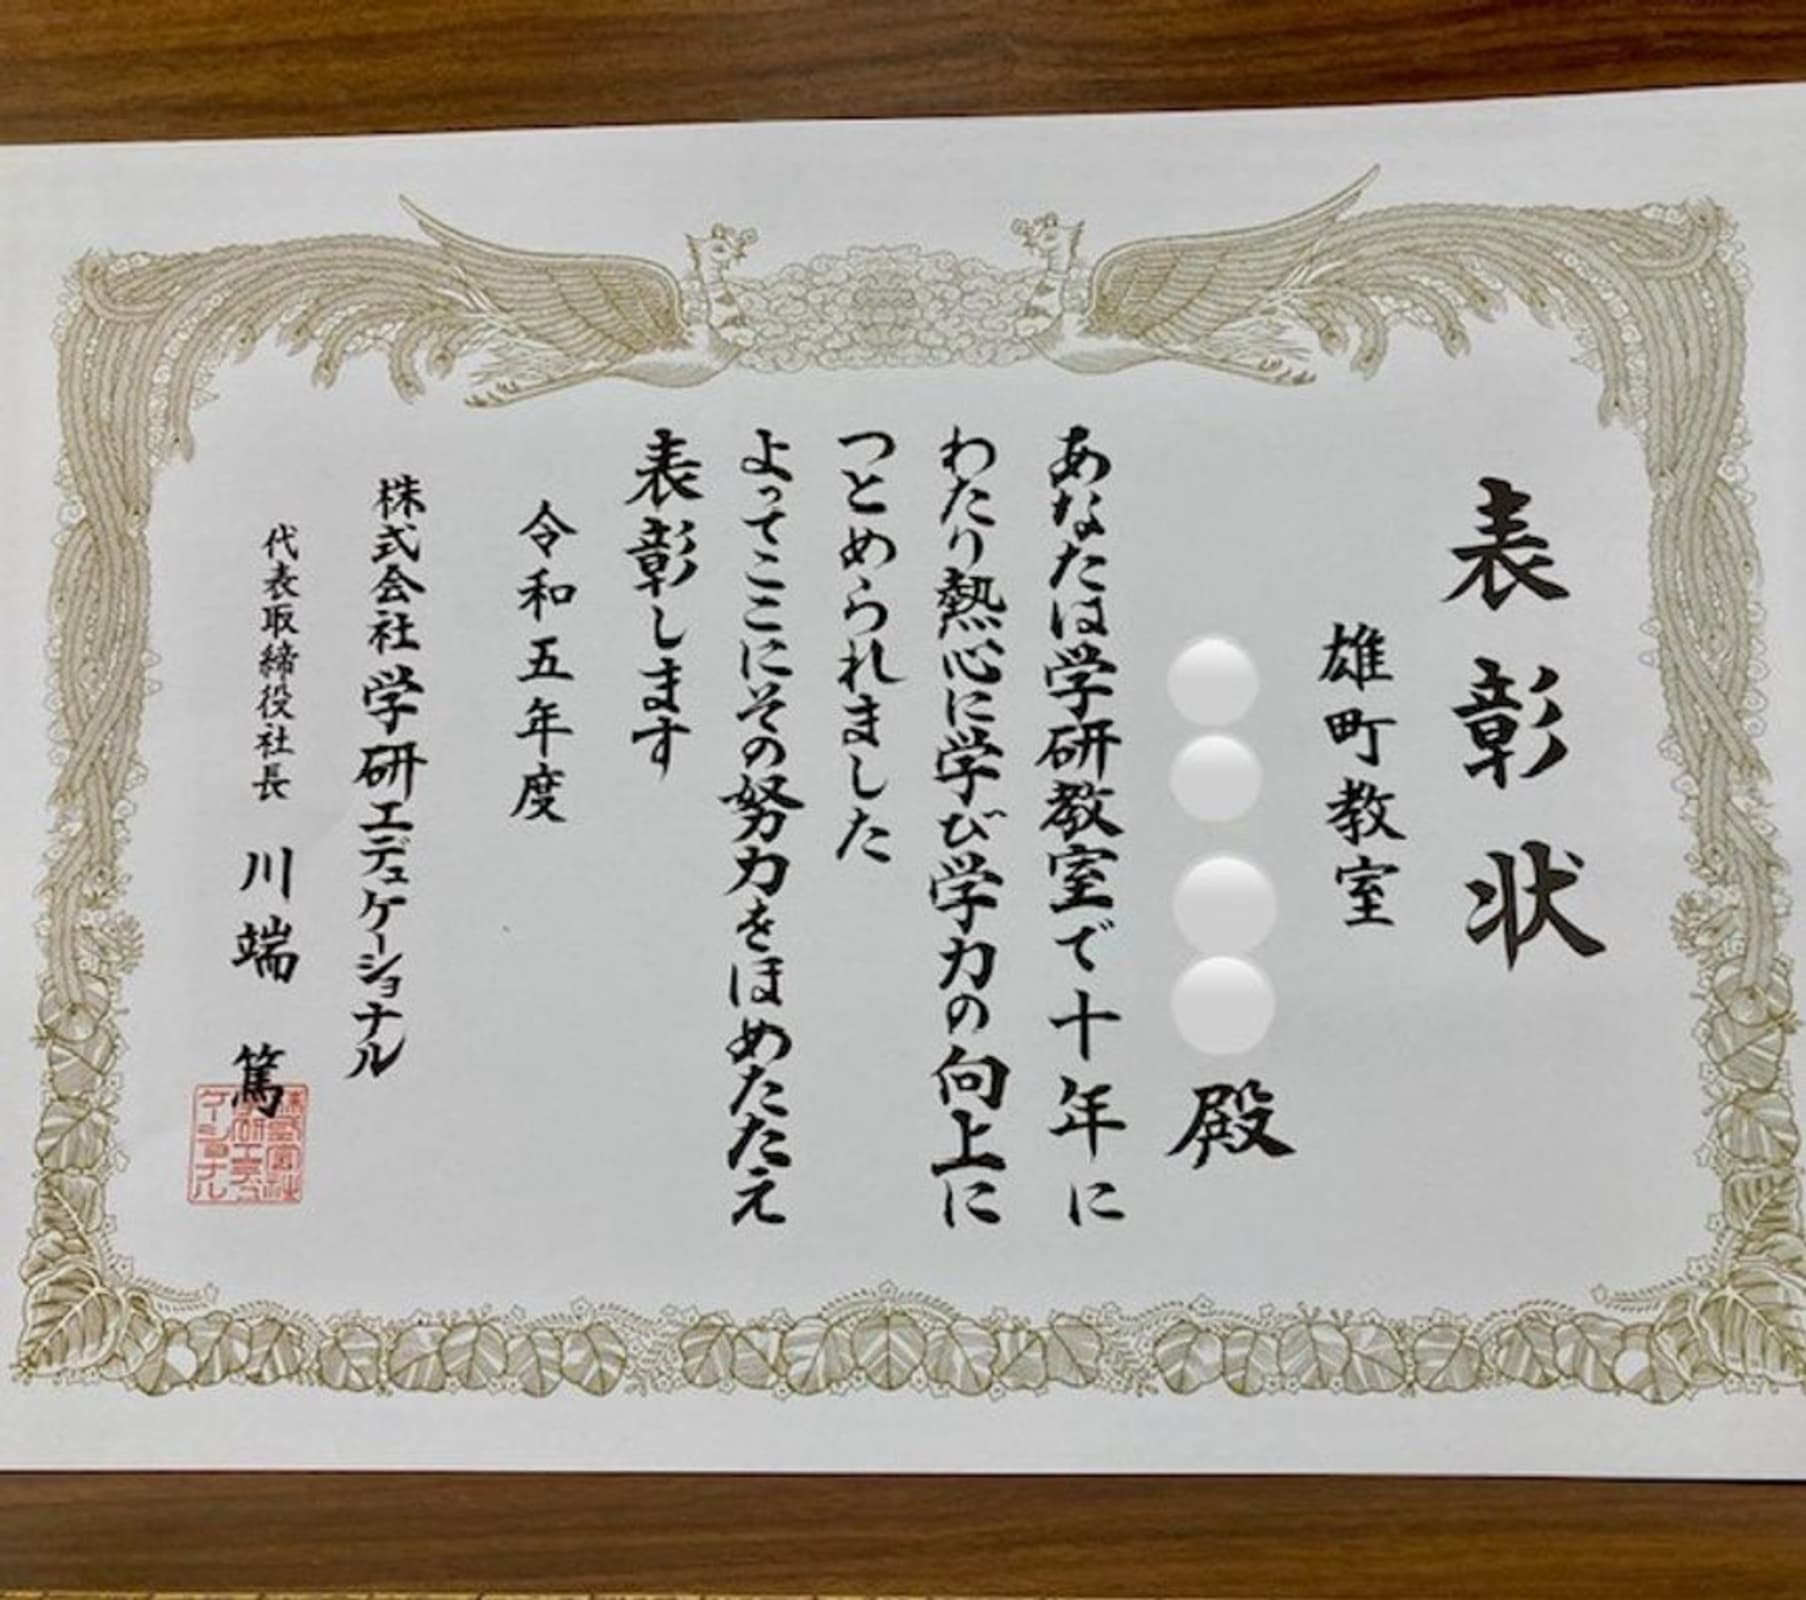 表彰状
雄町教室
殿
あなたは学研教室で十年に
わたり熱心に学び学力の向上に
つとめられました
よってここにその努力をほめたたえ
表彰します
令和五年度
株式会社学研エデュケーショナル
代表取締役社長 川端 篤
株式会社
学研エデュ
ケーショナル